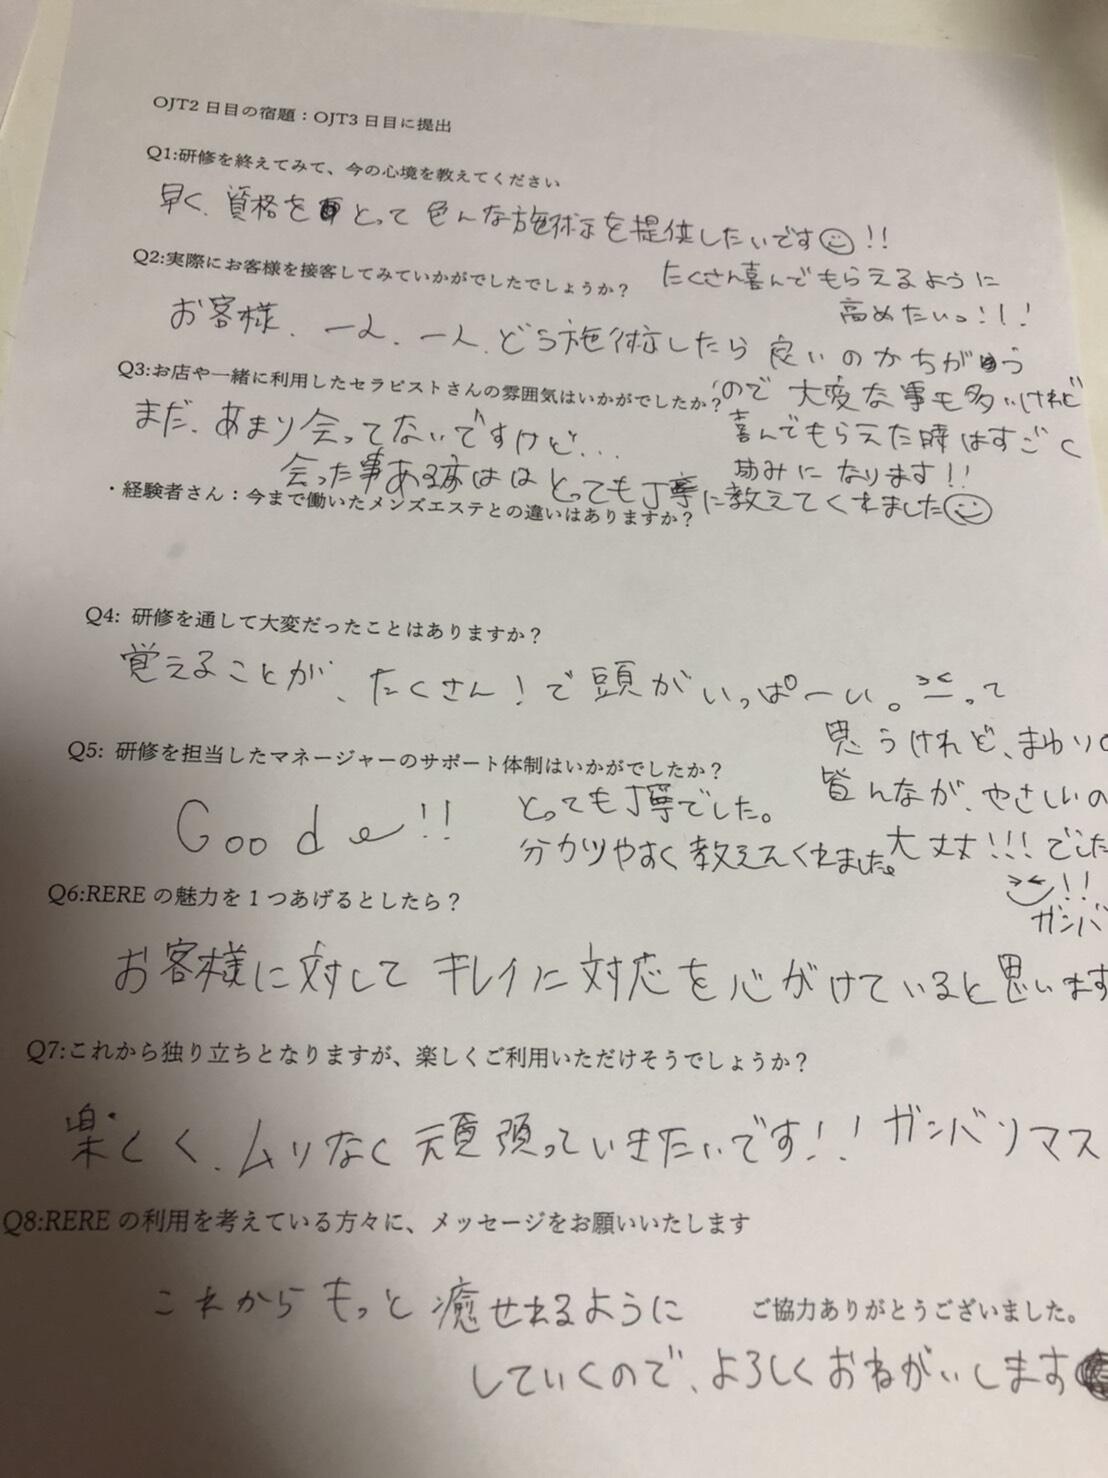 OJT2 日目の宿題：OJT3 日目に提出
Q1:研修を終えてみて、今の心境を教えてください
早く、資格をとって色んな施術を提供したいです!!
たくさん喜んでもらえるように
高めたいっ!!!
Q2:実際にお客様を接客してみていかがでしたでしょうか？
お客様、一人、一人、どう施術したら良いのかちがう
ので大変な事も多いけれど
喜んでもらえた時はすごく
励みになります!!
Q3:お店や一緒に利用したセラピストさんの雰囲気はいかがでしたか？
まだ、あまり会ってないですけど...
会った事ある方はとっても丁寧に教えてくれました
・経験者さん：今まで働いたメンズエステとの違いはありますか？
Q4: 研修を通して大変だったことはありますか？
覚えることが、たくさん！で頭がいっぱーい。って
思うけれど、まわりの
皆んなが、やさしいの
大丈夫!!!でした
!!
ガンバ
Q5: 研修を担当したマネージャーのサポート体制はいかがでしたか？
Goode!!
とっても丁寧でした。
分かりやすく教えてくれました。
Q6:RERE の魅力を 1 つあげるとしたら？
お客様に対してキレイに対応を心がけていると思います
Q7:これから独り立ちとなりますが、楽しくご利用いただけそうでしょうか？
楽しく、ムリなく頑張っていきたいです!! ガンバリマス
Q8:RERE の利用を考えている方々に、メッセージをお願いいたします
これからもっと癒せれるように
していくので、よろしくおねがいします
ご協力ありがとうございました。